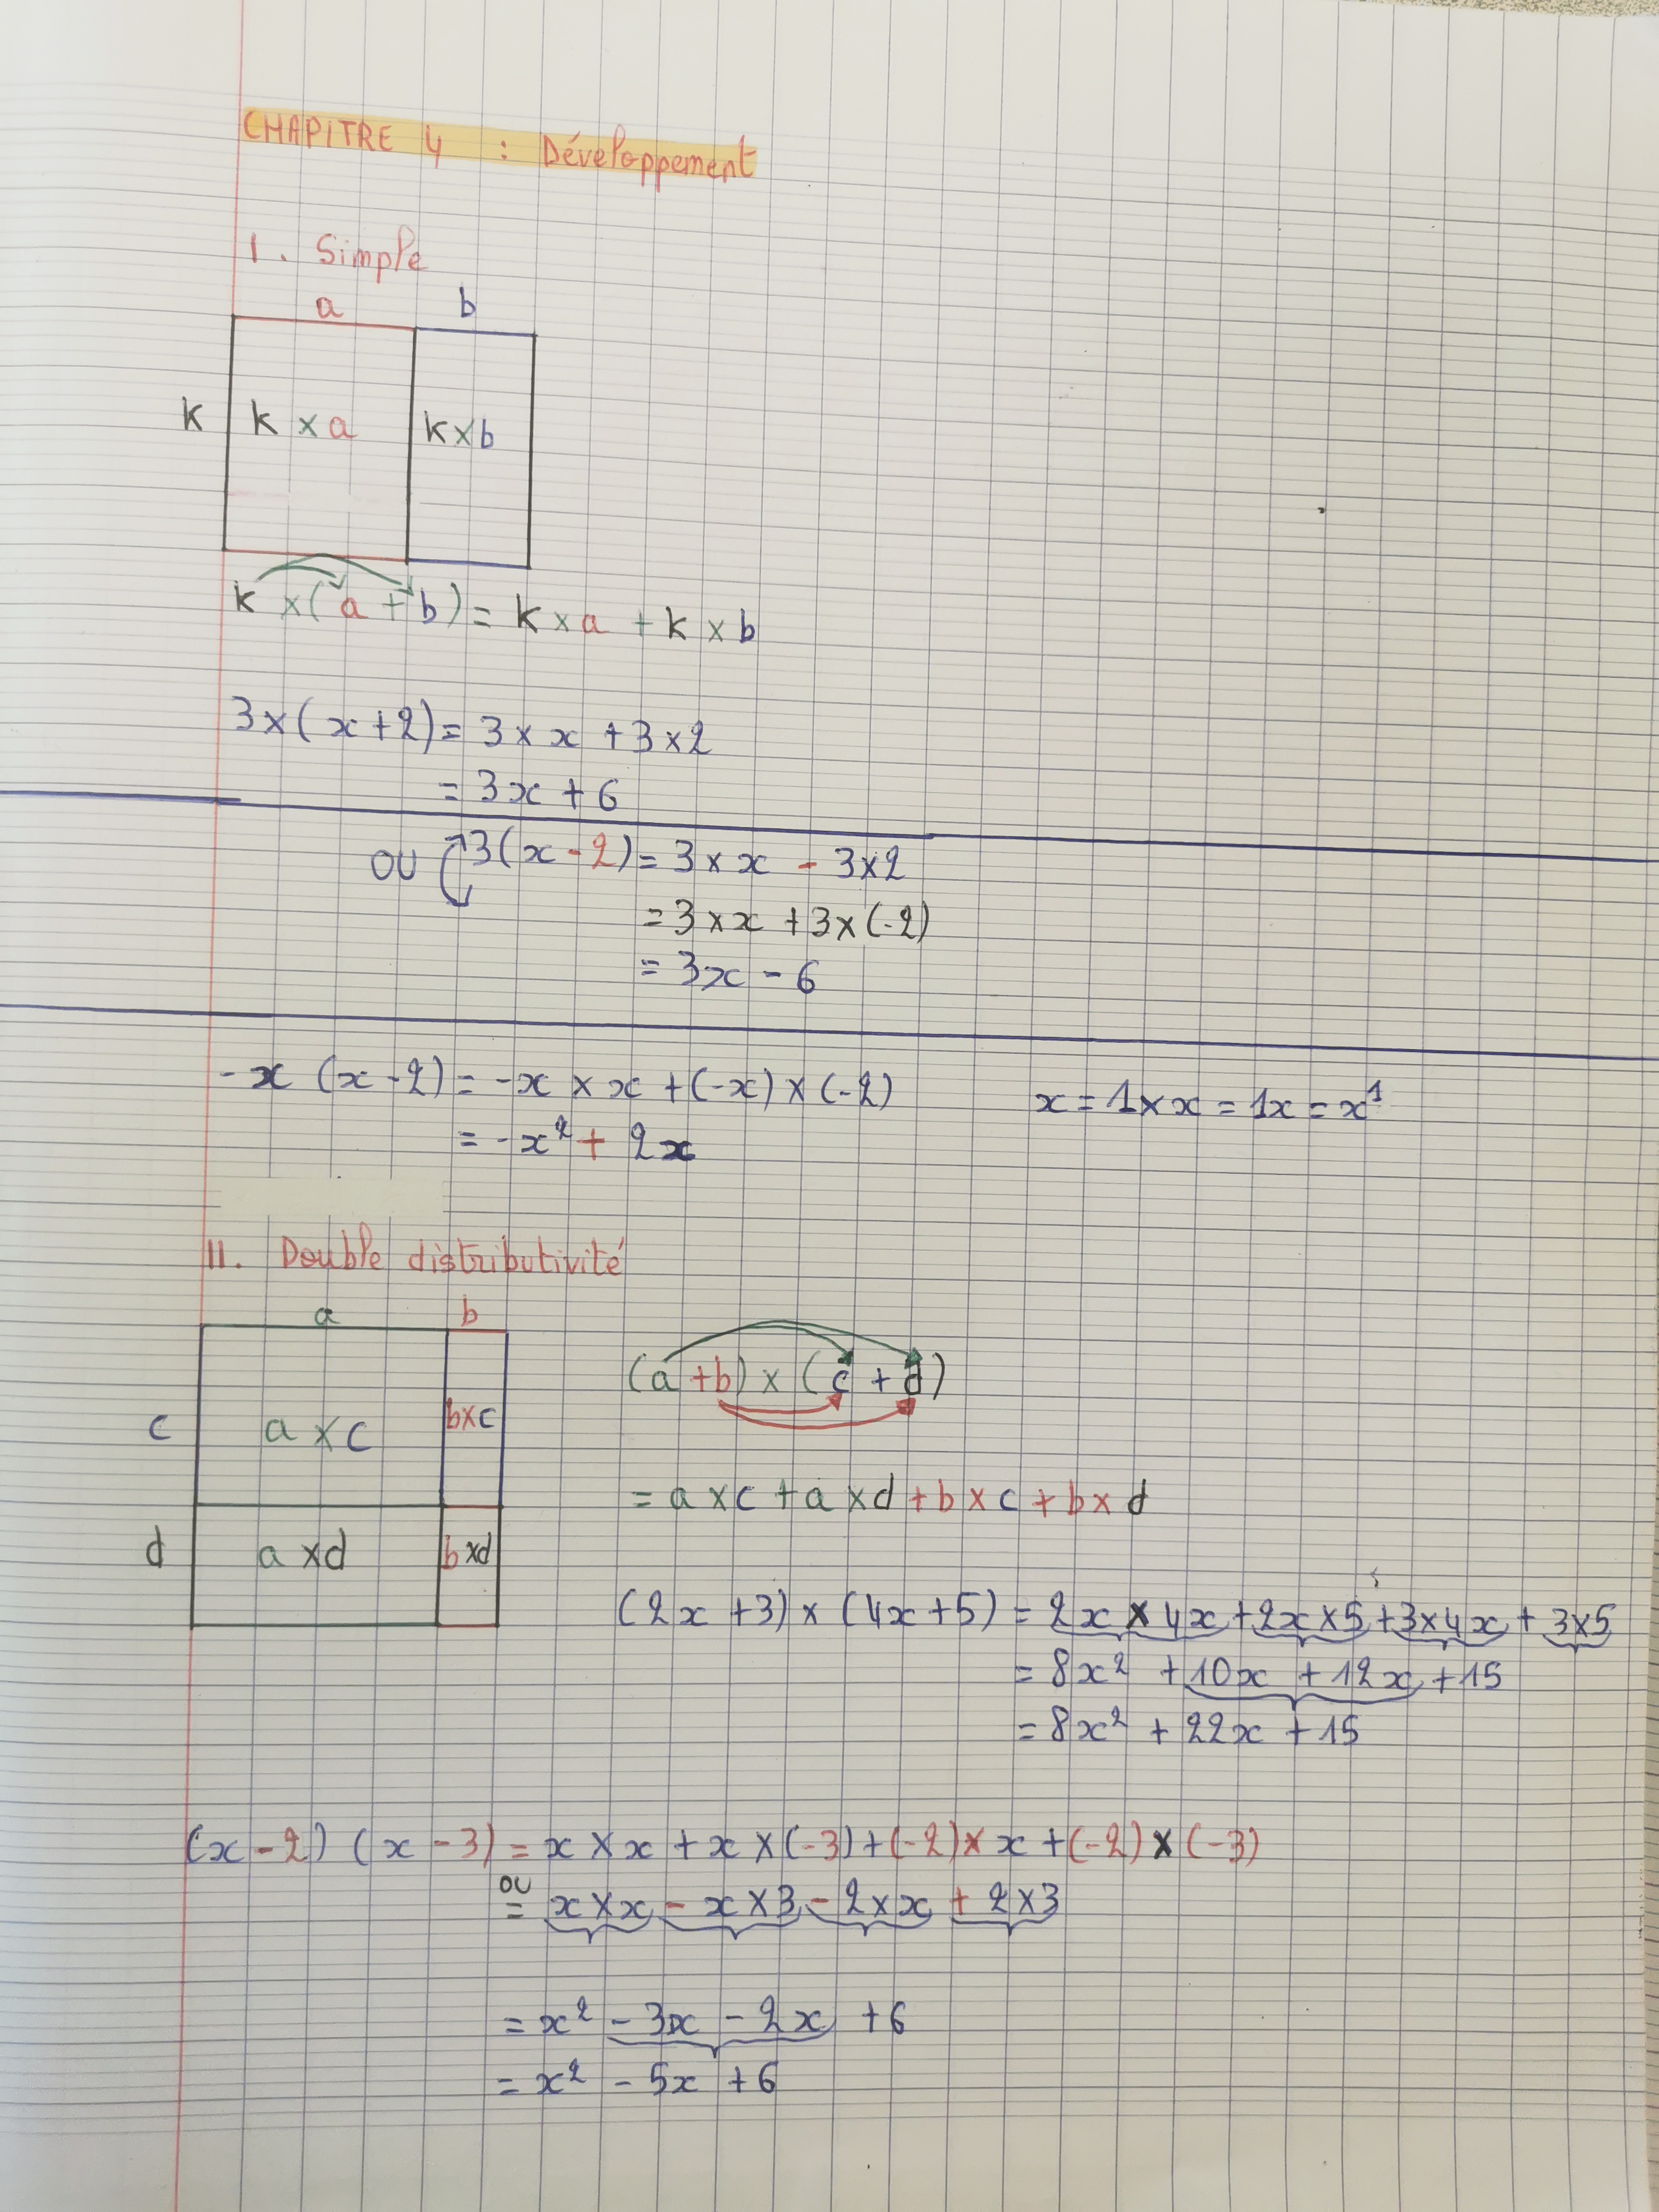 CHAPITRE 4 : Développement
I. Simple
a b
k k × a k × b
k × (a + b) = k × a + k × b
3 × (x + 2) = 3 × x + 3 × 2
= 3x + 6
OU 3(x - 2) = 3 × x - 3 × 2
= 3 × x + 3 × (-2)
= 3x - 6
-x (x - 2) = -x × x + (-x) × (-2) x = 1 × x = 1x = x¹
= -x² + 2x
II. Double distributivité
a b
(a + b) × (c + d)
c a × c b × c
= a × c + a × d + b × c + b × d
d a × d b × d
(2x + 3) × (4x + 5) = 2x × 4x + 2x × 5 + 3 × 4x + 3 × 5
= 8x² + 10x + 12x + 15
= 8x² + 22x + 15
(x - 2) (x - 3) = x × x + x × (-3) + (-2) × x + (-2) × (-3)
OU
= x × x - x × 3 - 2 × x + 2 × 3
= x² - 3x - 2x + 6
= x² - 5x + 6